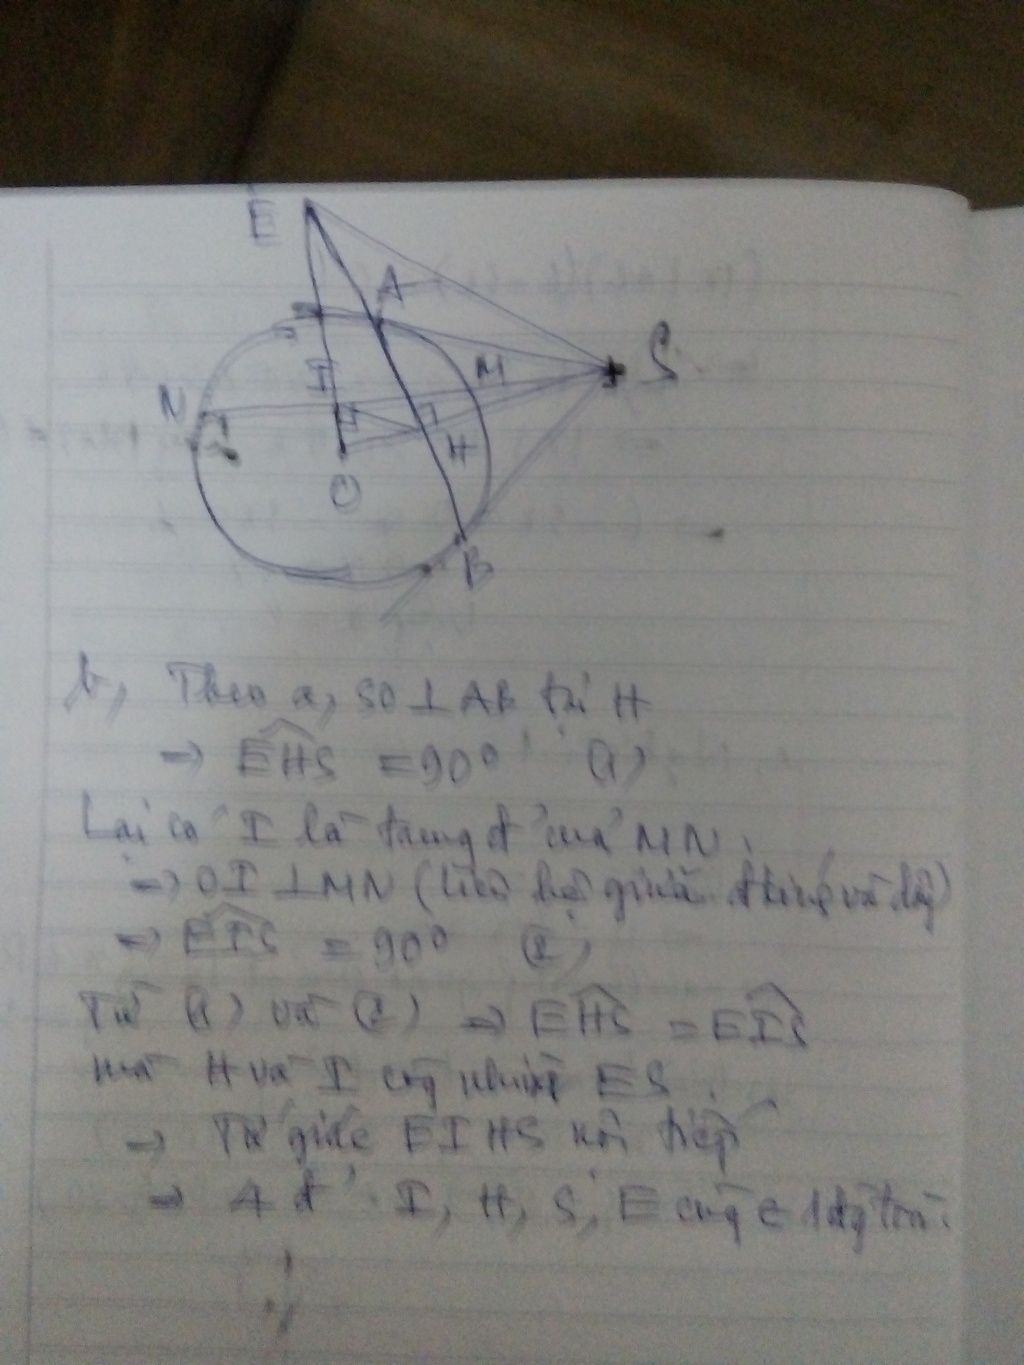 E
A
S
M
I
N
H
O
B
b, Theo a, SO ⊥ AB tại H
=> EHS = 90° (1)
Lại có I là trung đ' của MN.
=> OI ⊥ MN (liên hệ giữa đ kính và dây)
=> EIS = 90° (2)
Từ (1) và (2) => EHS = EIS
mà H và I cùng nhìn ES
=> Tứ giác EIHS nội tiếp
=> 4 đ' I, H, S, E cùng ∈ 1 đg tròn.